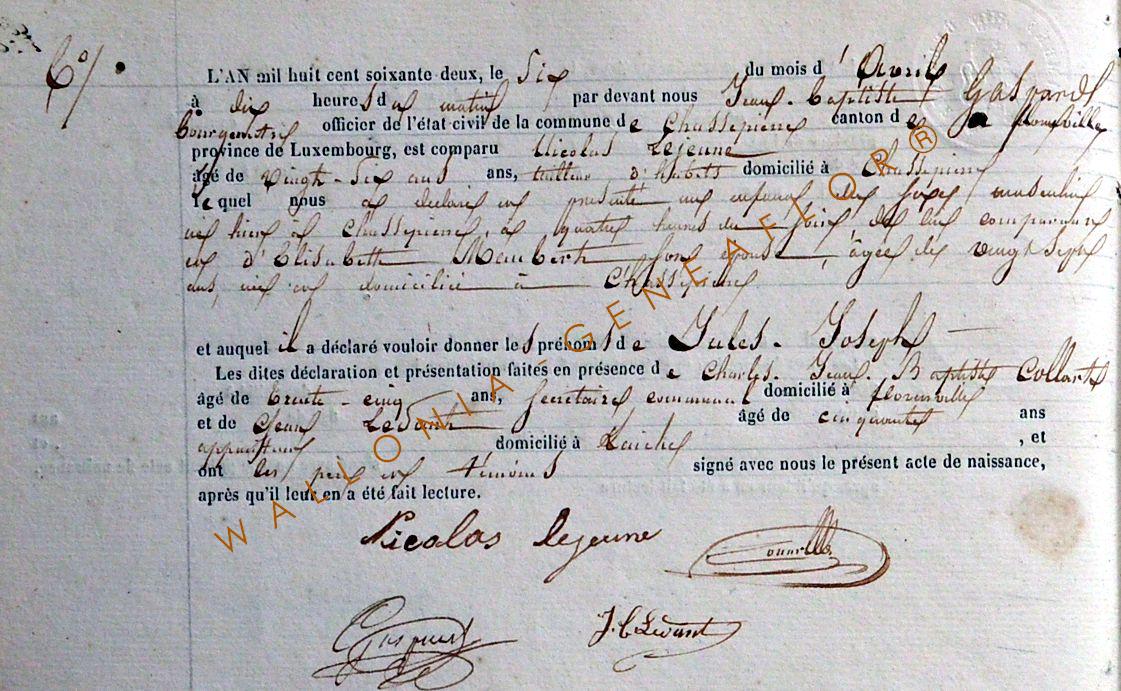 6°/.
L'AN mil huit cent soixante deux, le Six du mois d'Avril
à dix heures du matin par devant nous Jean-Baptiste Gaspard
Bourgmestre officier de l'état civil de la commune de Chassepierre canton de Florenville
province de Luxembourg, est comparu Nicolas Lejeune
âgé de vingt-six ans ans, tailleur d'habits domicilié à Chassepierre
lequel nous a déclaré et présenté un enfant du sexe masculin
né hier à Chassepierre, à quatre heures du soir, de lui comparant
et d'Elisabeth Maubert son épouse, âgée de vingt sept
ans, née et domiciliée à Chassepierre
et auquel il a déclaré vouloir donner les prénoms de Jules-Joseph
Les dites déclaration et présentation faites en présence de Charles-Jean-Baptiste Collart
âgé de trente-cinq ans, secrétaire communal domicilié à florenville
et de Jean Levant âgé de cinquante ans
appariteur domicilié à Laiche, et
ont les père et témoins signé avec nous le présent acte de naissance,
après qu'il leur en a été fait lecture.
Nicolas Lejeune
Gaspard J. B. Levant
WALLONIA-GENEAFLOR®